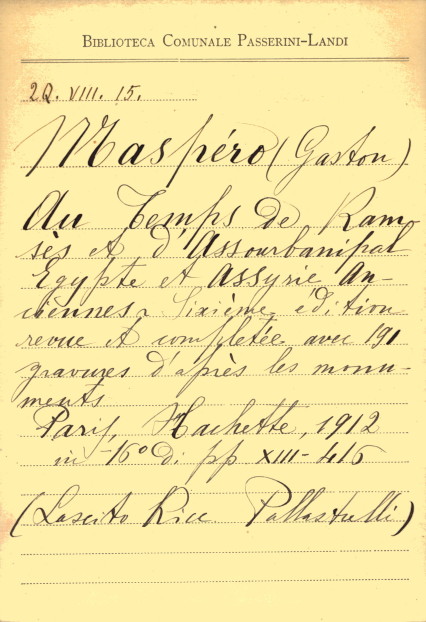 BIBLIOTECA COMUNALE PASSERINI-LANDI
2Q. VIII. 15.
Maspéro (Gaston)
Au Temps de Ram-
sès et d'Assourbanipal
Egypte et Assyrie An-
ciennes. Sixième édition
revue et completée avec 191
gravures d'après les monu-
ments
Paris, Hachette, 1912
in -16° di pp XIII-416
(Lascito Ricc Pallastrelli)